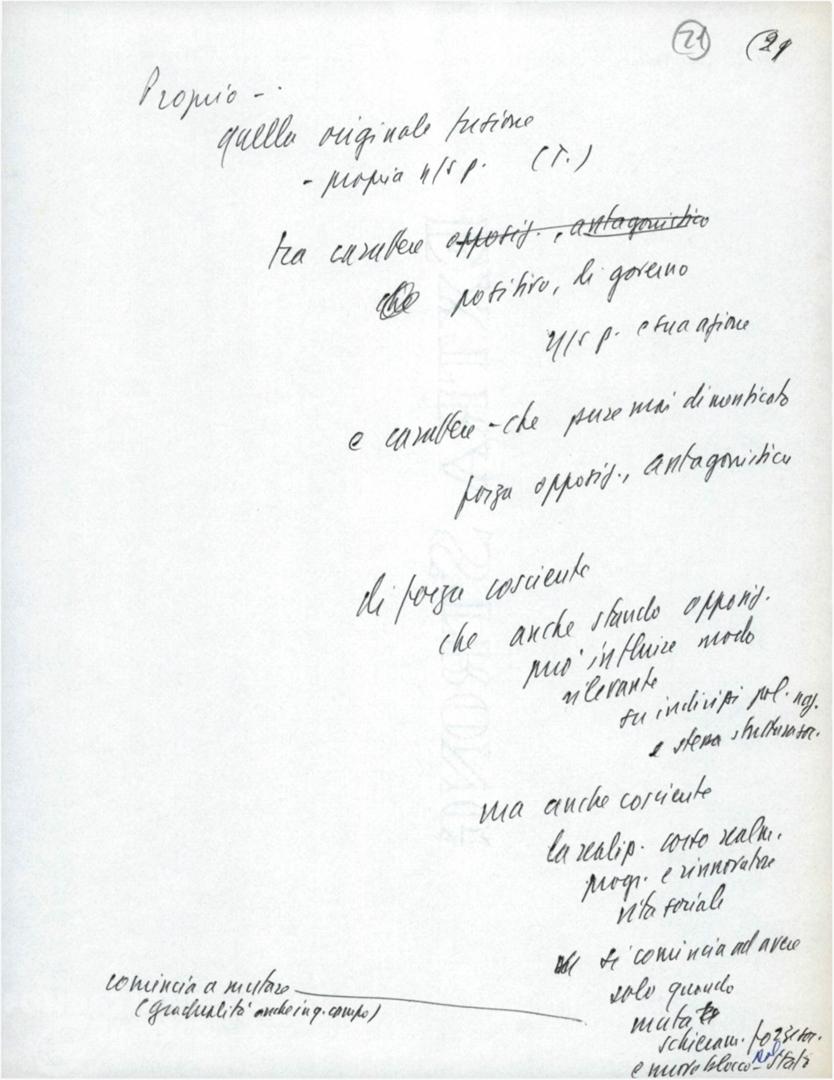 21 (21
Proprio - .
quella originale fusione
- propria n/s p. (T.)
tra carattere opposiz., antagonistico
che positivo, di governo
n/s p. e sua azione
e carattere - che pure mai dimenticato
forza opposiz., antagonistica
di forza cosciente
che anche stando opposiz.
può influire modo
rilevante
su indirizzi pol. naz.
e stessa struttura soc.
ma anche cosciente
la realizz. corso realm.
progr. e rinnovatore
vita sociale
si comincia ad avere
comincia a mutare
solo quando
(gradualità anche in q. campo)
muta
schieram. forze soc.
e nuovo blocco sal. Stato